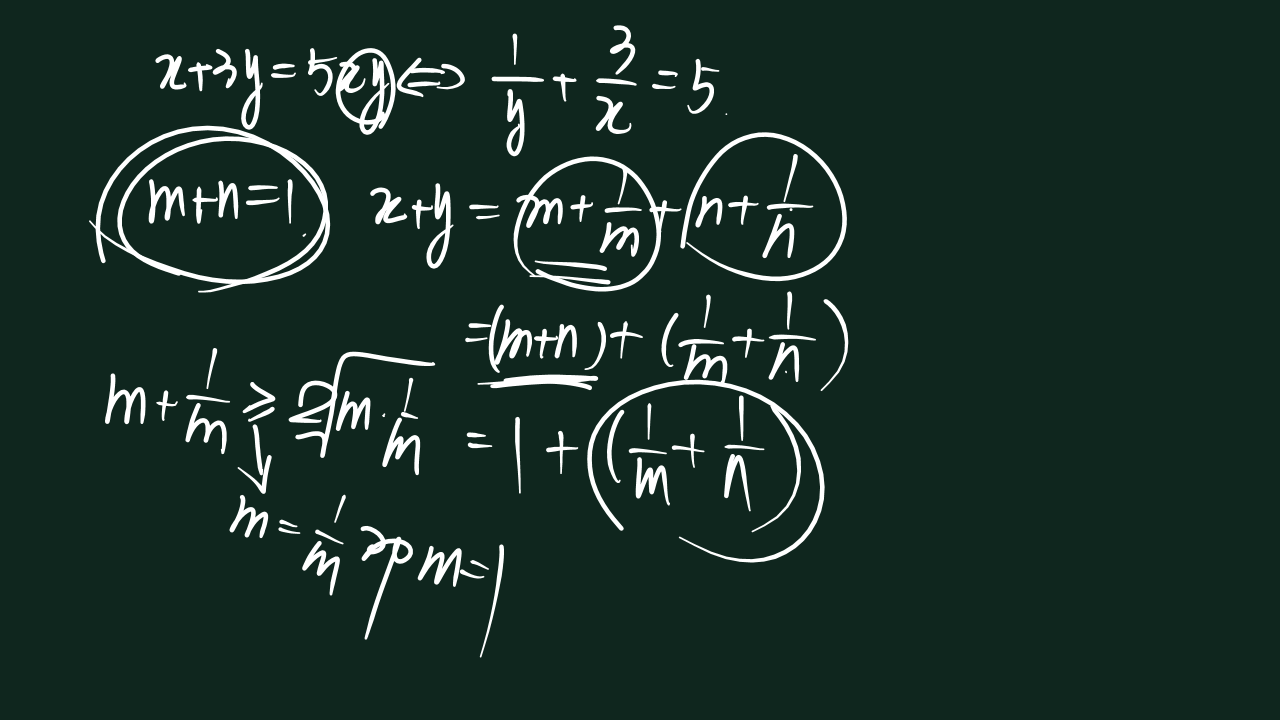 x+3y=5xy⇔1/y+3/x=5
m+n=1
x+y=m+1/m+n+1/n
=(m+n)+(1/m+1/n)
m+1/m≥2√(m·1/m)
=1+(1/m+1/n)
m=1/m即m=1